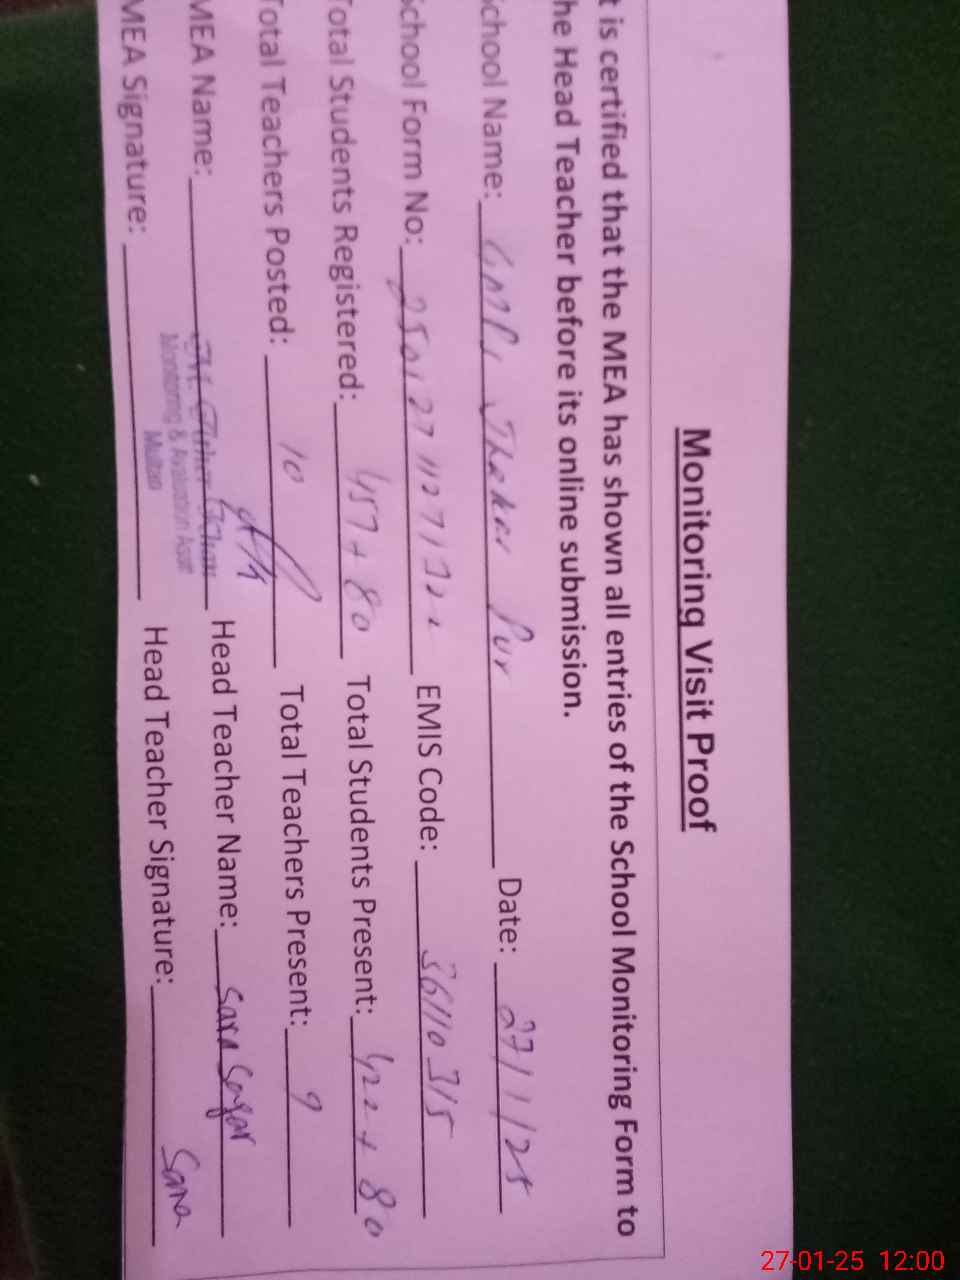 Monitoring Visit Proof
t is certified that the MEA has shown all entries of the School Monitoring Form to
he Head Teacher before its online submission.
School Name: Thaker Pur Date: 27/1/25
School Form No: EMIS Code: 36110315
Total Students Registered: 457+80 Total Students Present: 422+80
Total Teachers Posted: 10 Total Teachers Present: 9
MEA Name: Head Teacher Name: Sara
Monitoring & Evaluation Assistt
Multan
MEA Signature: Head Teacher Signature: Sara
27-01-25 12:00